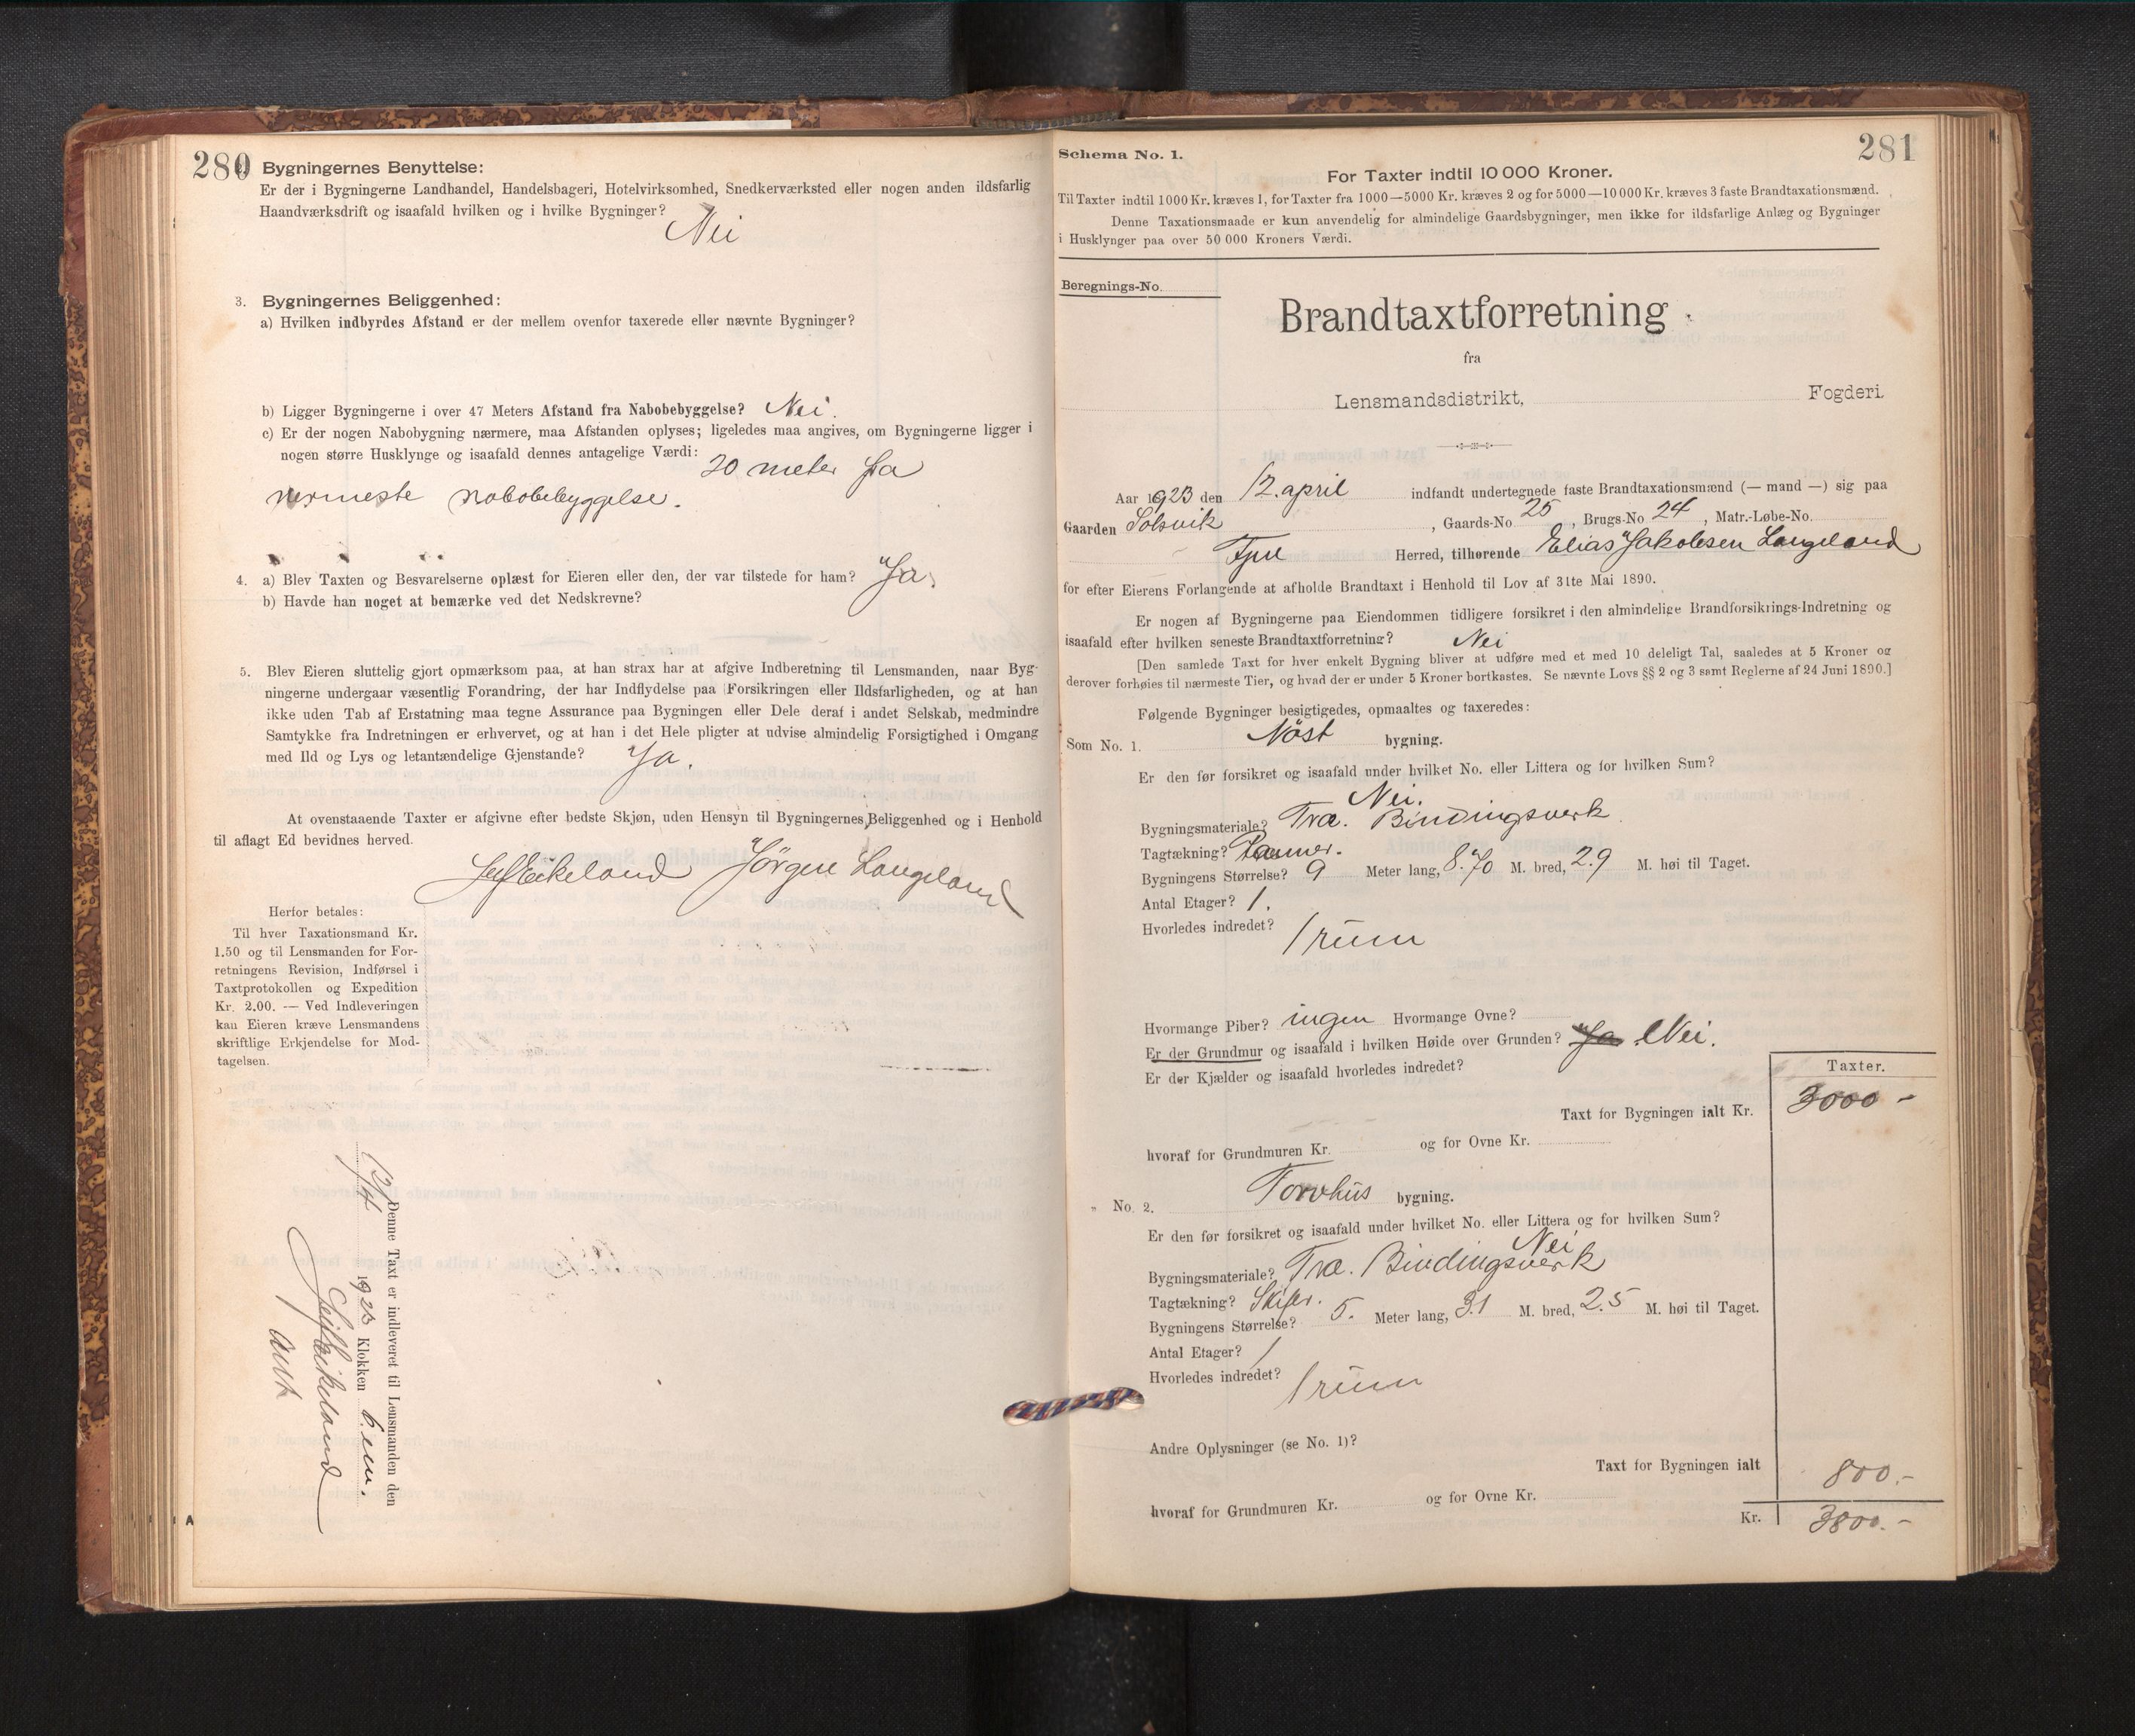 280
Bygningernes Benyttelse:
Er der i Bygningerne Landhandel, Handelsbageri, Hotelvirksomhed, Snedkerværksted eller nogen anden ildsfarlig
Haandværksdrift og isaafald hvilken og i hvilke Bygninger?
Nei
3. Bygningernes Beliggenhed:
a) Hvilken indbyrdes Afstand er der mellem ovenfor taxerede eller nævnte Bygninger?
b) Ligger Bygningerne i over 47 Meters Afstand fra Nabobebyggelse? Nei.
c) Er der nogen Nabobygning nærmere, maa Afstanden oplyses; ligeledes maa angives, om Bygningerne ligger i
nogen større Husklynge og isaafald dennes antagelige Værdi: 20 meter fra
nermeste nabobebyggelse.
4. a) Blev Taxten og Besvarelserne oplæst for Eieren eller den, der var tilstede for ham? Ja.
b) Havde han noget at bemærke ved det Nedskrevne?
5. Blev Eieren sluttelig gjort opmærksom paa, at han strax har at afgive Indberetning til Lensmanden, naar Byg-
ningerne undergaar væsentlig Forandring, der har Indflydelse paa Forsikringen eller Ildsfarligheden, og at han
ikke uden Tab af Erstatning maa tegne Assurance paa Bygningen eller Dele deraf i andet Selskab, medmindre
Samtykke fra Indretningen er erhvervet, og at han i det Hele pligter at udvise almindelig Forsigtighed i Omgang
med Ild og Lys og letantændelige Gjenstande? Ja.
At ovenstaaende Taxter er afgivne efter bedste Skjøn, uden Hensyn til Bygningernes Beliggenhed og i Henhold
til aflagt Ed bevidnes herved.
Jørgen Langeland
Herfor betales:
Til hver Taxationsmand Kr.
1.50 og til Lensmanden for For-
retningens Revision, Indførsel i
Taxtprotokollen og Expedition
Kr. 2.00. — Ved Indleveringen
kan Eieren kræve Lensmandens
skriftlige Erkjendelse for Mod-
tagelsen.
Denne Taxt er indleveret til Lensmanden den
1923 Klokken 6 em.
281
Schema No. 1.
For Taxter indtil 10 000 Kroner.
Til Taxter indtil 1000 Kr. kræves 1, for Taxter fra 1000—5000 Kr. kræves 2 og for 5000—10 000 Kr. kræves 3 faste Brandtaxationsmænd.
Denne Taxationsmaade er kun anvendelig for almindelige Gaardsbygninger, men ikke for ildsfarlige Anlæg og Bygninger
i Husklynger paa over 50 000 Kroners Værdi.
Beregnings-No.
Brandtaxtforretning
fra
Lensmandsdistrikt, Fogderi.
Aar 1923 den 12. april indfandt undertegnede faste Brandtaxationsmænd (— mand —) sig paa
Gaarden Solsvik, Gaards-No 25, Brugs-No 24, Matr.-Løbe-No.
Fjell Herred, tilhørende Elias Jakobsen Langeland
for efter Eierens Forlangende at afholde Brandtaxt i Henhold til Lov af 31te Mai 1890.
Er nogen af Bygningerne paa Eiendommen tidligere forsikret i den almindelige Brandforsikrings-Indretning og
isaafald efter hvilken seneste Brandtaxtforretning? Nei
[Den samlede Taxt for hver enkelt Bygning bliver at udføre med et med 10 deleligt Tal, saaledes at 5 Kroner og
derover forhøies til nærmeste Tier, og hvad der er under 5 Kroner bortkastes. Se nævnte Lovs §§ 2 og 3 samt Reglerne af 24 Juni 1890.]
Følgende Bygninger besigtigedes, opmaaltes og taxeredes:
Som No. 1. Nøst bygning.
Er den før forsikret og isaafald under hvilket No. eller Littera og for hvilken Sum?
Nei.
Bygningsmateriale? Træ. Bindingsverk
Tagtækning? Panner.
Bygningens Størrelse? 9 Meter lang, 8.70 M. bred, 2.9 M. høi til Taget.
Antal Etager? 1.
Hvorledes indredet? 1 rum
Hvormange Piber? ingen Hvormange Ovne?
Er der Grundmur og isaafald i hvilken Høide over Grunden? Ja Nei.
Er der Kjælder og isaafald hvorledes indredet?
Taxter.
Taxt for Bygningen ialt Kr. 3000 -
hvoraf for Grundmuren Kr. og for Ovne Kr.
" No. 2. Torvhus bygning.
Er den før forsikret og isaafald under hvilket No. eller Littera og for hvilken Sum?
Nei
Bygningsmateriale? Træ. Bindingsverk
Tagtækning? Skifer.
Bygningens Størrelse? 5. Meter lang, 3.1 M. bred, 2.5 M. høi til Taget.
Antal Etager? 1
Hvorledes indredet? 1 rum
Andre Oplysninger (se No. 1)?
Taxt for Bygningen ialt 800.-
hvoraf for Grundmuren Kr. og for Ovne Kr.
Kr. 3800.-